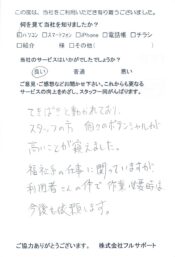 この度は、当社をご利用いただき有り難うございました。
何を見て当社を知りましたか？
☑パソコン □スマートフォン □iPhone □電話帳 □チラシ
□紹介 様 □その他( )
当社のサービスはいかがでしたでしょうか？
良い 普通 悪い
ご意見・ご感想などお聞かせ下さい。これからも更なる
サービスの向上をめざし、スタッフ一同がんばります。
てきぱきと動かれており、
スタッフの方 個々のポテンシャルが
高いことが窺えました。
福祉系の仕事に関っていますが
利用者さんの件で作業必要時は
今後も依頼します。
ご協力ありがとうございます。 株式会社フルサポート